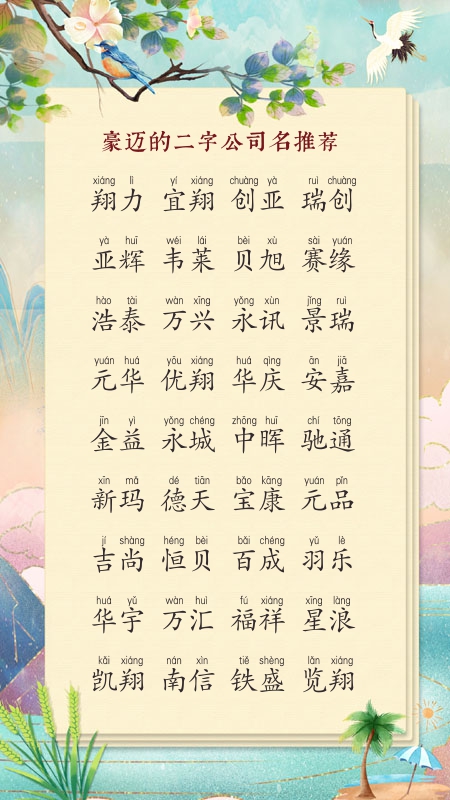 豪迈的二字公司名推荐
xiáng lì yí xiáng chuàng yà ruì chuàng
翔力 宜翔 创亚 瑞创
yà huī wéi lái bèi xù sài yuán
亚辉 韦莱 贝旭 赛缘
hào tài wàn xīng yǒng xùn jǐng ruì
浩泰 万兴 永讯 景瑞
yuán huá yōu xiáng huá qìng ān jiā
元华 优翔 华庆 安嘉
jīn yì yǒng chéng zhōng huī chí tōng
金益 永城 中晖 驰通
xīn mǎ dé tiān bǎo kāng yuán pǐn
新玛 德天 宝康 元品
jí shàng héng bèi bǎi chéng yǔ lè
吉尚 恒贝 百成 羽乐
huá yǔ wàn huì fú xiáng xīng làng
华宇 万汇 福祥 星浪
kǎi xiáng nán xìn tiě shèng lǎn xiáng
凯翔 南信 铁盛 览翔